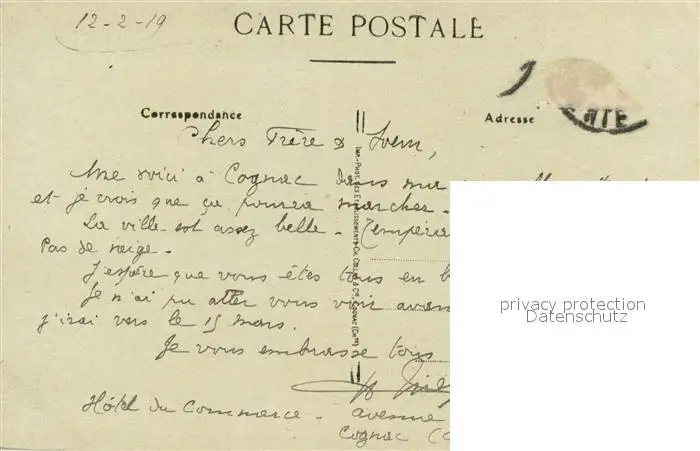 12-2-19
CARTE POSTALE
Correspondance
Adresse
Chers Frère & Soeur,
Me voici à Cognac dans ma
et je crois que ça pourra marcher.
La ville est assez belle. Tempéra
Pas de neige.
J'espère que vous êtes tous en b
Je n'ai pu aller vous voir avan
j'irai vers le 15 mars.
Je vous embrasse tous
Hôtel du Commerce - avenue
Cognac (C
IMP.-PHOT. DES ETABLISSEMENTS CH. COLLAS & Cie, COGNAC (Chte)
privacy protection
Datenschutz